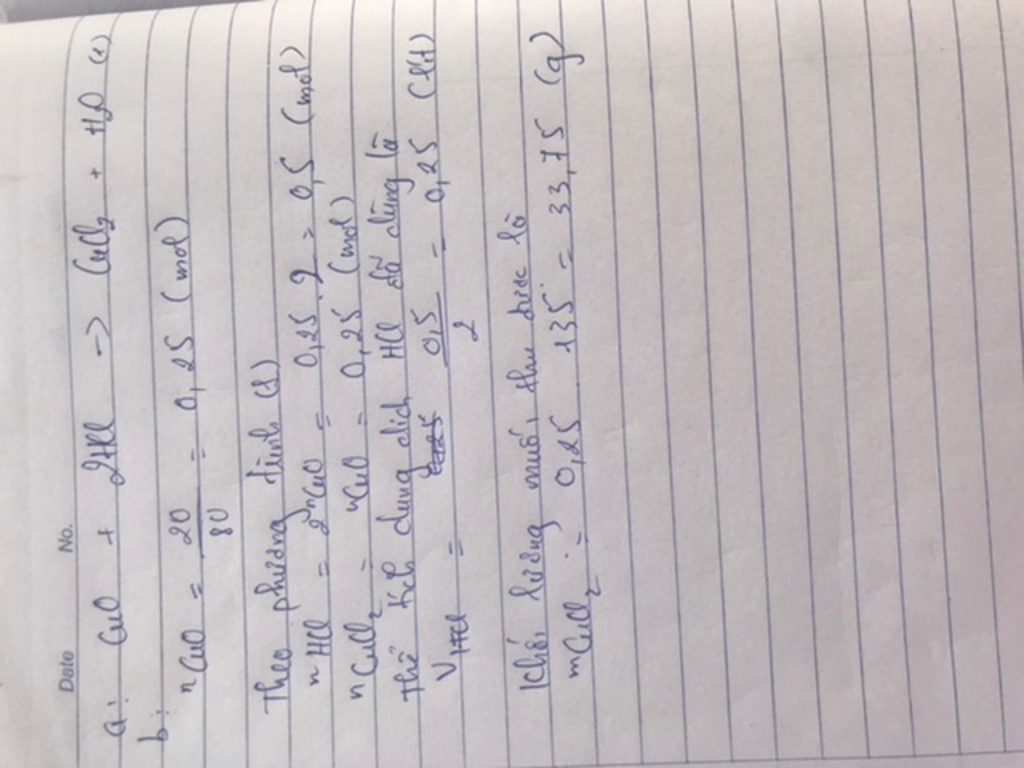 Date No.
a: CuO + 2HCl -> CuCl2 + H2O (1)
b:
nCuO = 20/80 = 0,25 (mol)
Theo phương trình (1)
nHCl = 2nCuO = 0,25.2 = 0,5 (mol)
nCuCl2 = nCuO = 0,25 (mol)
Thể tích dung dịch HCl đã dùng là
VHCl = 0,5/2 = 0,25 (lít)
Khối lượng muối thu được là
mCuCl2 = 0,25.135 = 33,75 (g)